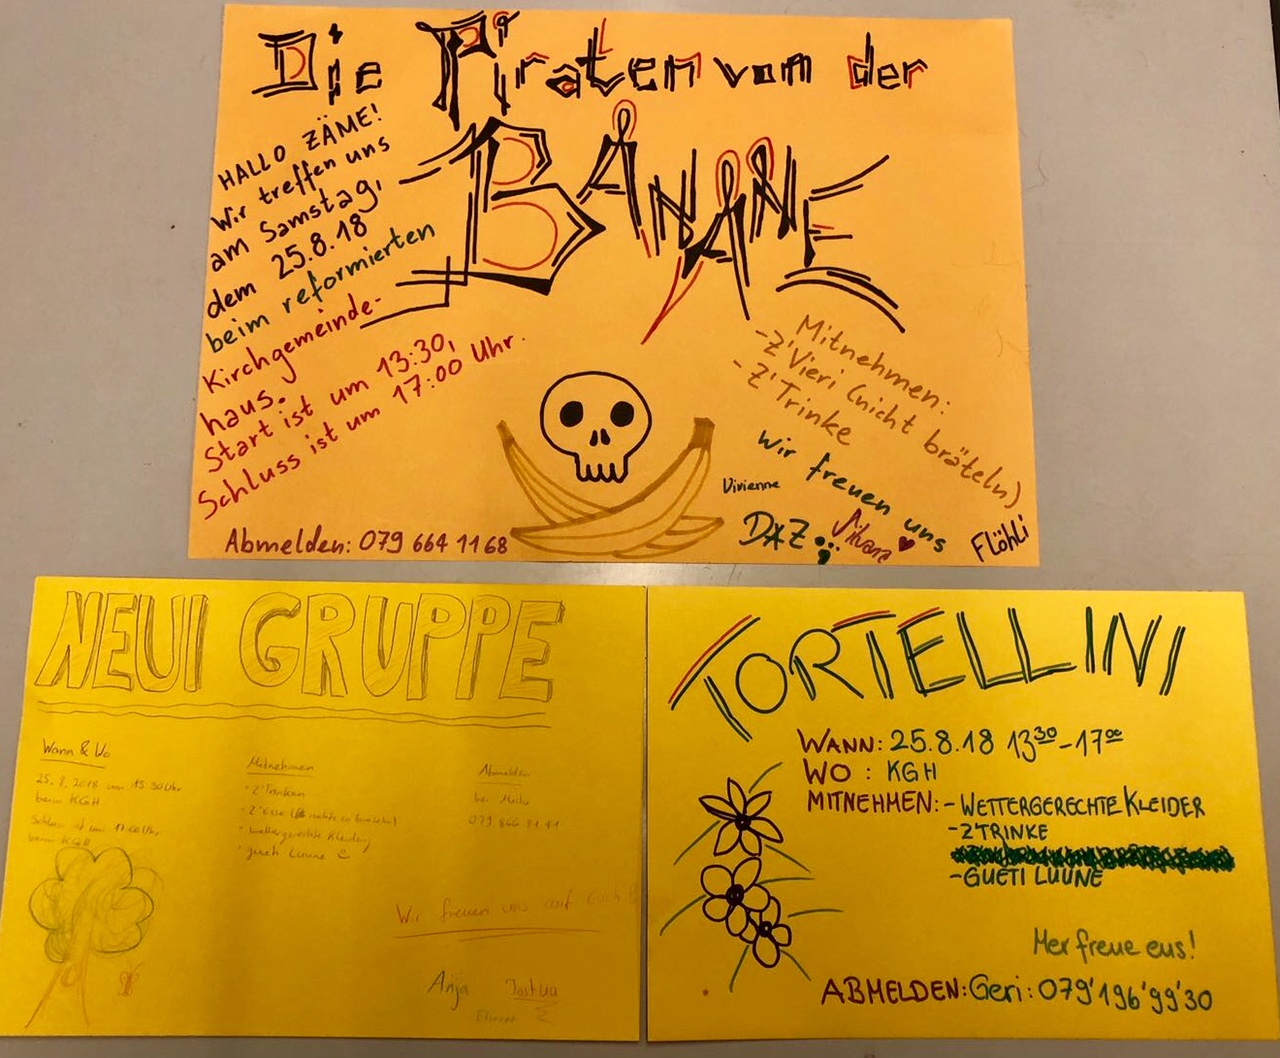 Die Piraten von der
BANANE
HALLO ZÄME!
Wir treffen uns
am Samstag,
dem 25.8.18
beim reformierten
Kirchgemeinde-
haus.
Start ist um 13:30,
Schluss ist um 17:00 Uhr.
Abmelden: 079 664 11 68
Mitnehmen:
-Z'Vieri (nicht bräteln)
-Z'Trinke
wir freuen uns
Vivienne
DAZ
Silvana
Flöhli
NEUI GRUPPE
Wann & Wo
25.8.2018 um
beim KGH
Schluss ist um 17:00 Uhr
beim KGH
Mitnehmen
- Z'Trinken
- Z'Esse
- wettergerechte Kleidung
- gueti Luune
Abmelden
bei
079 866 81 41
Wir freuen uns auf Euch!
Anja Joshua
TORTELLINI
WANN: 25.8.18 13³⁰-17⁰⁰
WO : KGH
MITNEHMEN: - WETTERGERECHTE KLEIDER
- Z'TRINKE
- GUETI LUUNE
Mer freue eus!
ABMELDEN: Geri: 079'196'99'30